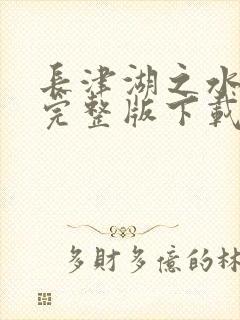 長津湖之水
完整版下載
多財多億的林